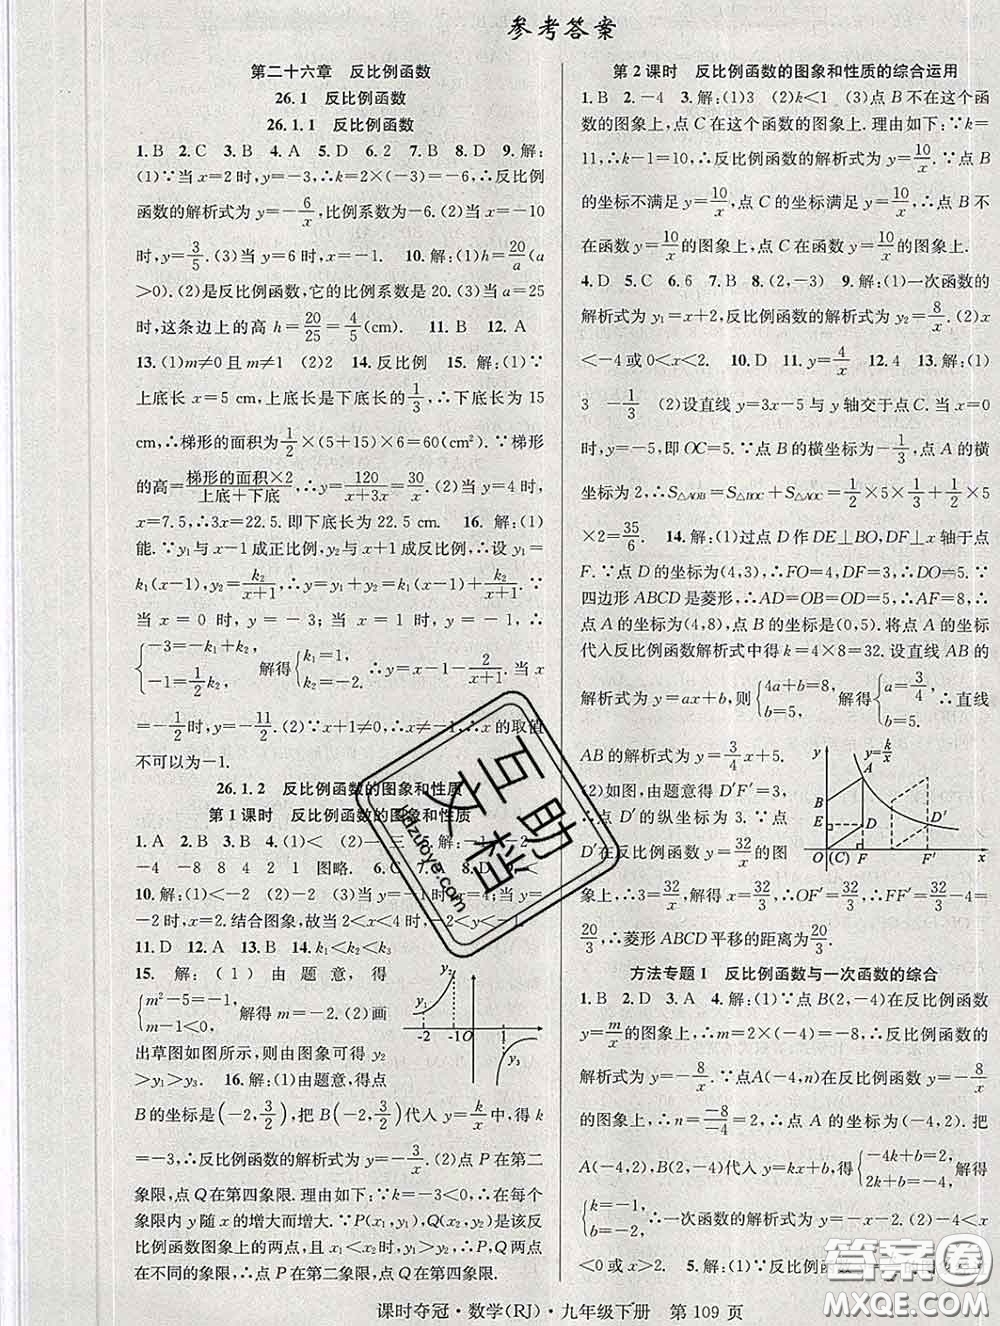 参考答案
第二十六章 反比例函数
26.1 反比例函数
26.1.1 反比例函数
1.B 2.C 3.B 4.A 5.D 6.2 7.B 8.D 9.解:
(1)∵当x=2时,y=-3,∴k=2×(-3)=-6,∴反比例
函数的解析式为y=-6/x,比例系数为-6.(2)当x=-10
时,y=3/5.(3)当y=6时,x=-1. 10.解:(1)h=20/a(a
>0).(2)是反比例函数,它的比例系数是20.(3)当a=25
时,这条边上的高h=20/25=4/5(cm). 11.B 12.A
13.(1)m≠0且m≠1 (2)2 14.反比例 15.解:(1)∵
上底长x=5 cm,上底长是下底长的1/3,∴下底长为15
cm,∴梯形的面积为1/2×(5+15)×6=60(cm²).∵梯形
的高=梯形的面积×2/上底+下底,∴y=120/x+3x=30/x.(2)当y=4时,
x=7.5,∴3x=22.5.即下底长为22.5 cm. 16.解:(1)
能.∵y₁与x-1成正比例,y₂与x+1成反比例,∴设y₁=
k₁(x-1),y₂=k₂/x+1,∴y=y₁+y₂=k₁(x-1)+k₂/x+1.∵
当x=0时,y=-3;当x=1时,y=-1,∴
{-3=-k₁+k₂, -1=1/2k₂, 解得{k₁=1, k₂=-2. ∴y=x-1-2/x+1.当x
=-1/2时,y=-11/2.(2)∵x+1≠0,∴x≠-1,∴x的取值
不可以为-1.
26.1.2 反比例函数的图象和性质
第1课时 反比例函数的图象和性质
1.A 2.B 3.B 4.(1)< (2)一 三
-4 -8 8 4 2 1 图略. 6.C
10.解:(1)当x=2时,y=-2;当x=4时,y=-1;当y
=-2时,x=2.结合图象,故当2<x<4时,-2<y<-1.
11.D 12.A 13.B 14.k₁<k₂<k₃
15.解:(1)由题意,得
{m²-5=-1, m-1<0, 解得m=-2.(2)画
出草图如图所示,则由图象可得y₂
>y₁>y₃. 16.解:(1)由题意,得点
B的坐标是(-2,3/2),把B(-2,3/2)代入y=k/x中,得k
=-3,∴反比例函数的解析式为y=-3/x.(2)点P在第二
象限,点Q在第四象限.理由如下:∵k=-3<0,∴在每个象
限内y随x的增大而增大.∵P(x₁,y₁),Q(x₂,y₂)是该反
比例函数图象上的两点,且x₁<x₂时,y₁>y₂,∴P,Q两点
在不同的象限,∴点P在第二象限,点Q在第四象限.
y y₂
y₁
-2 -1 O 1 x
y₃
第2课时 反比例函数的图象和性质的综合运用
1.B 2.-4 3.解:(1)3 (2)k<1 (3)点B不在这个函
数的图象上,点C在这个函数的图象上.理由如下:∵k=
11,∴k-1=10,∴反比例函数的解析式为y=10/x.∵点B
的坐标不满足y=10/x,点C的坐标满足y=10/x,∴点B不
在函数y=10/x的图象上,点C在函数y=10/x的图象上.
4.D 5.C 6.6 7.B 8.(2,-3) 9.解:(1)一次函数的
解析式为y₁=x+2,反比例函数的解析式为y₂=8/x.(2)x
<-4或0<x<2. 10.D 11.y=4/x 12.4 13.解:(1)
3 -1/3 (2)设直线y=3x-5与y轴交于点C.当x=0
时,y=-5,即OC=5.∵点B的横坐标为-1/3,点A的横
坐标为2,∴S△AOB=S△BOC+S△AOC=1/2×5×1/3+1/2×5
×2=35/6. 14.解:(1)过点D作DE⊥BO,DF⊥x轴于点
F.∵点D的坐标为(4,3),∴FO=4,DF=3,∴DO=5.∵
四边形ABCD是菱形,∴AD=OB=OD=5,∴AF=8,∴
点A的坐标为(4,8),点B的坐标为(0,5).将点A的坐标
代入反比例函数解析式中得k=4×8=32.设直线AB的
解析式为y=ax+b,则{4a+b=8, b=5, 解得{a=3/4, b=5. ∴直线
AB的解析式为y=3/4x+5.
(2)如图,由题意得D′F′=3,
∴D′的纵坐标为3.∵点D′
在反比例函数y=32/x的图
象上,∴3=32/x,解得x=32/3,∴OF′=32/3,∴FF′=32/3-4=
20/3,∴菱形ABCD平移的距离为20/3.
y y=k/x
A
B
E D D′
O (C) F F′ x
方法专题1 反比例函数与一次函数的综合
1.B 2.D 3.A 4.解:(1)∵点B(2,-4)在反比例函数
y=m/x的图象上,∴m=2×(-4)=-8,∴反比例函数的
解析式为y=-8/x.∵点A(-4,n)在反比例函数y=-8/x
的图象上,∴n=-8/-4=2,∴点A的坐标为(-4,2).把
A(-4,2),B(2,-4)代入y=kx+b,得{-4k+b=2, 2k+b=-4, 解得
{k=-1, b=-2. ∴一次函数的解析式为y=-x-2.(2)-4<x
<0或x>2. 5.解:(1)
课时夺冠·数学(RJ)·九年级下册 第109页
互助文档
hnzuoye.com
答案圈
MXQE.COM